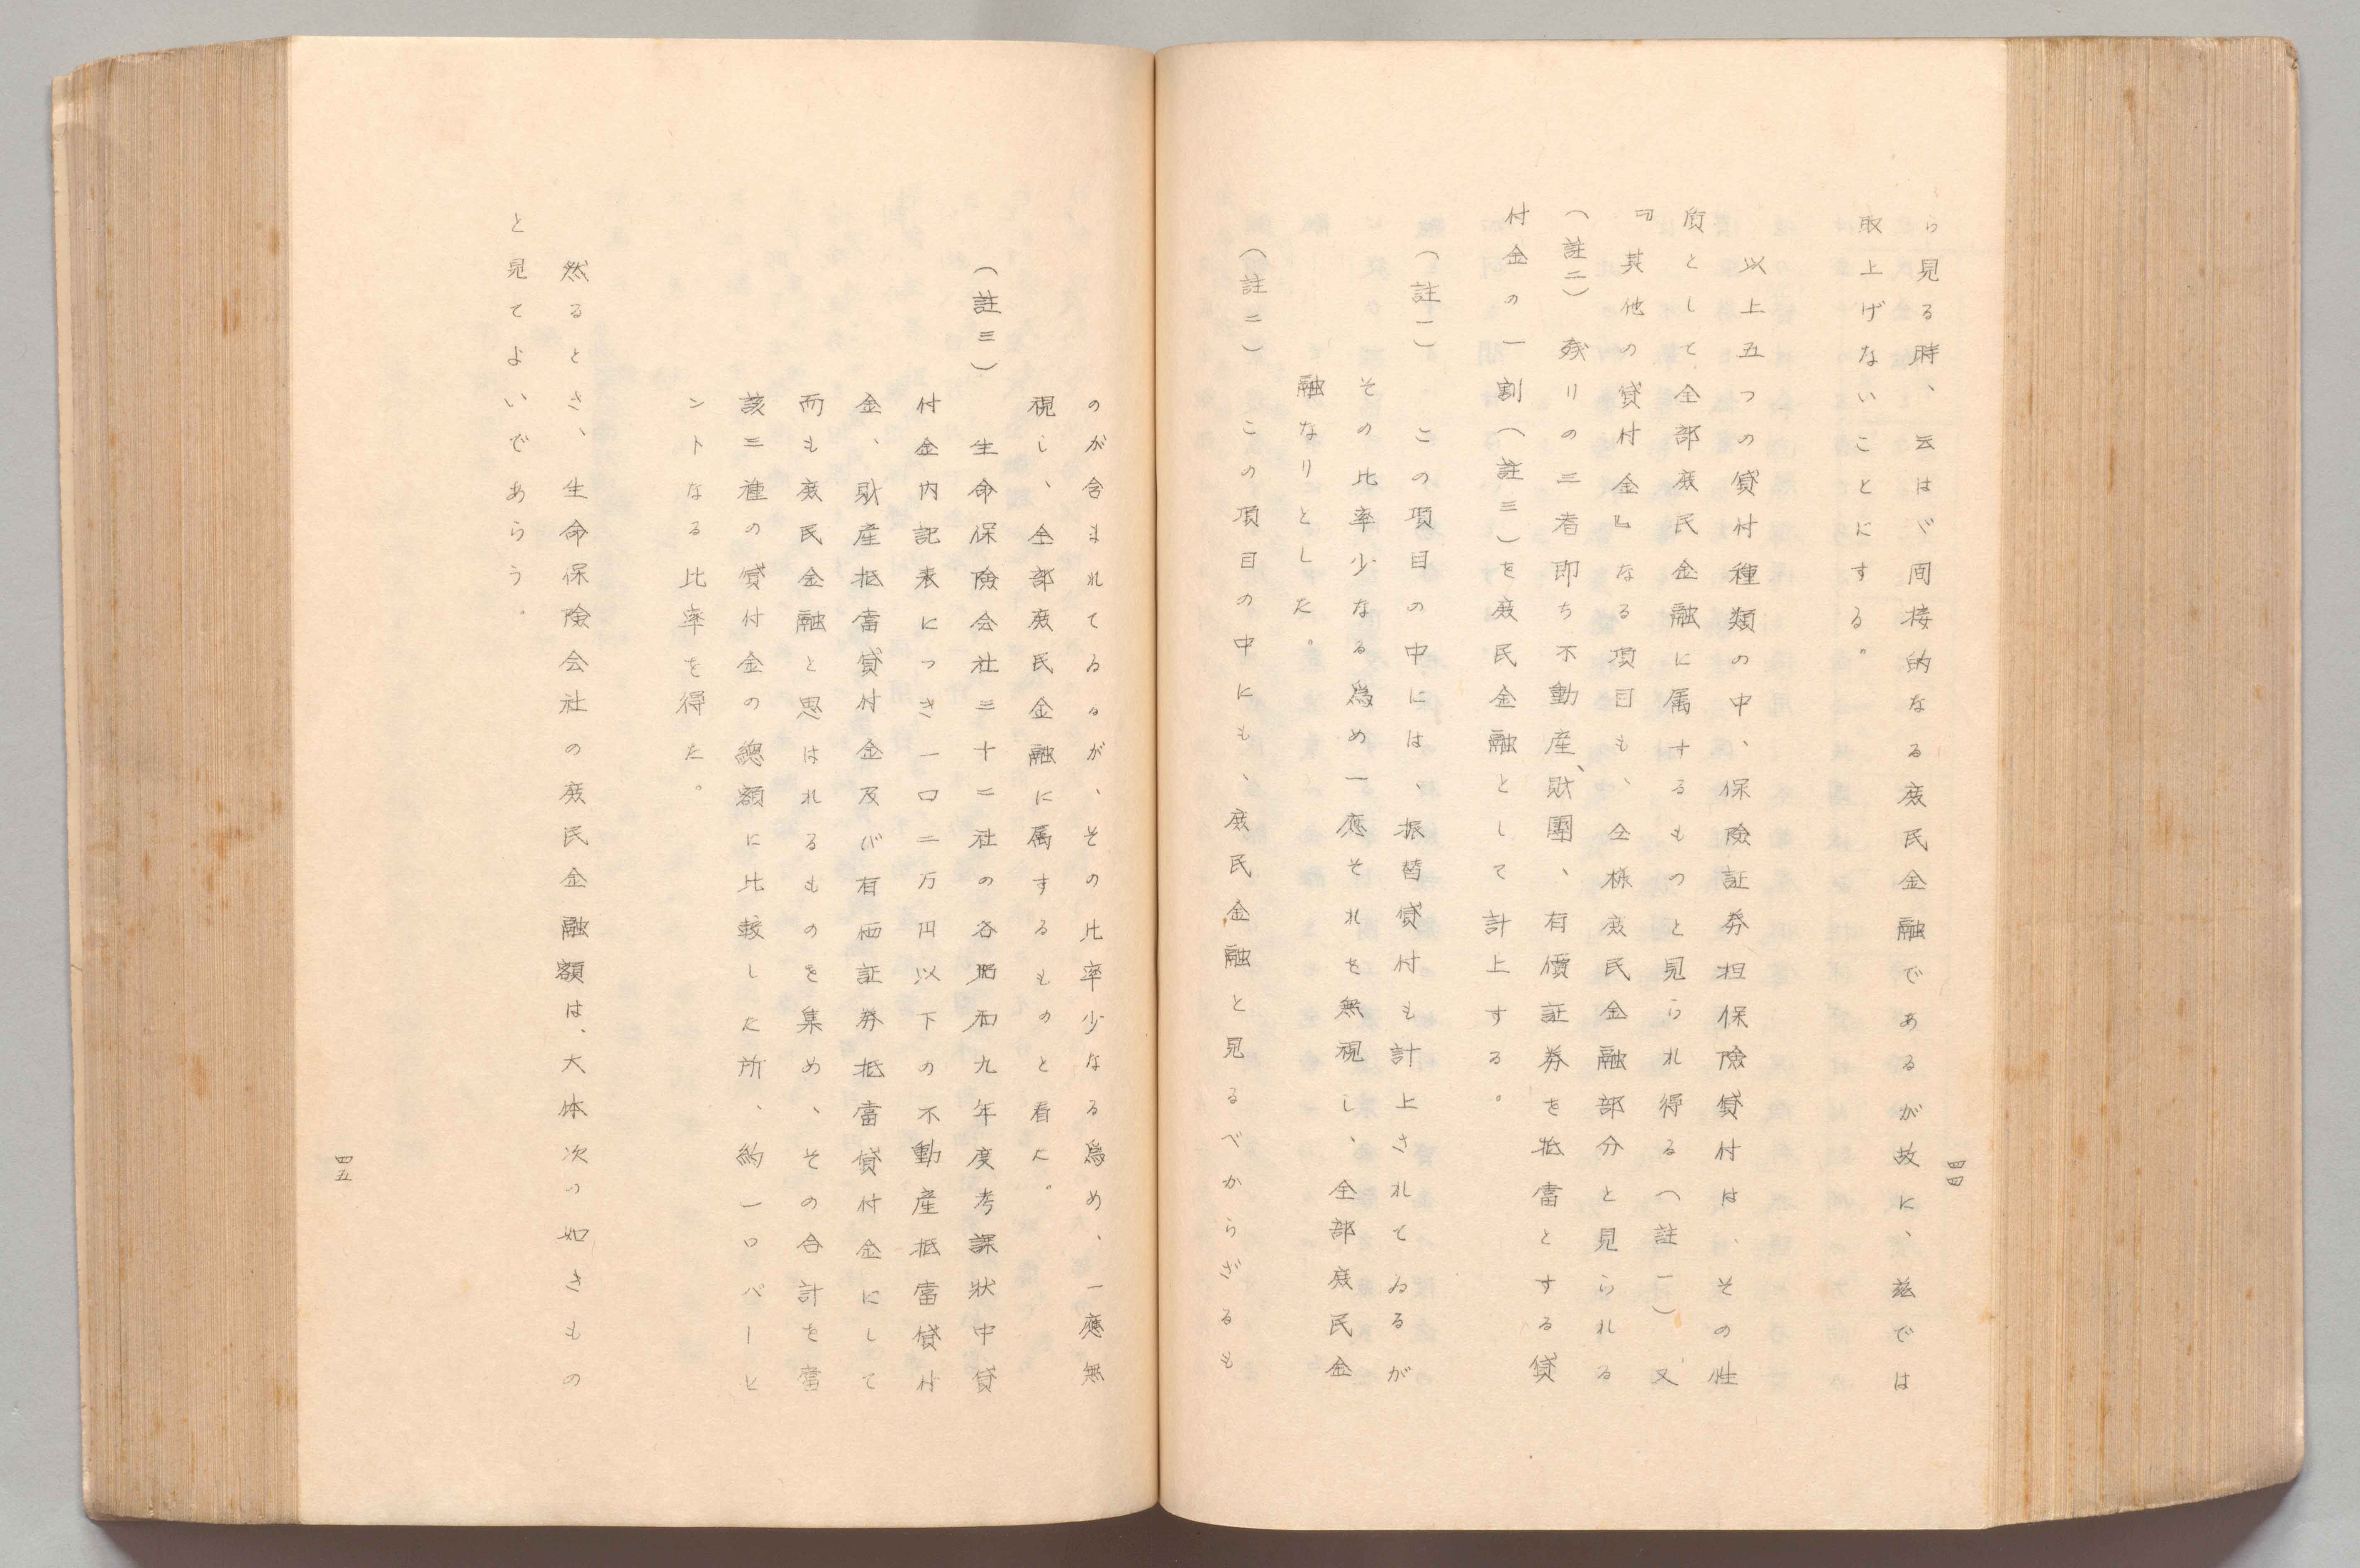 四四
ら見る時、云はゞ間接的なる庶民金融であるが故に、玆では
取上げないことにする。
以上五つの貸付種類の中、保険証券担保保険貸付は、その性
質として全部庶民金融に属するもつと見られ得る（註一）又
『其他の貸付金』なる項目も、仝様庶民金融部分と見られる
（註二）残リの三者即ち不動産、財團、有價証券を抵當とする貸
付金の一割（註三）を庶民金融として計上する。
（註一）この項目の中には、振替貸付も計上されてゐるが
その比率少なる爲め一應それを無視し、全部庶民金
融なりとした。
（註二）この項目の中にも、庶民金融と見るべからざるも
のが含まれてゐるが、その比率少なる爲め、一應無
視し、全部庶民金融に属するものと看た。
（註三）生命保険会社三十二社の各昭和九年度考課状中貸
付金内記表につき一口二万円以下の不動産抵當貸付
金、財産抵當貸付金及び有価証券抵當貸付金にして
而も庶民金融と思はれるものを集め、その合計を當
該三種の貸付金の總額に比較した所、約一〇パーセ
ントなる比率を得た。
然るとき、生命保険会社の庶民金融額は、大体次の如きもの
と見てよいであらう。
四五